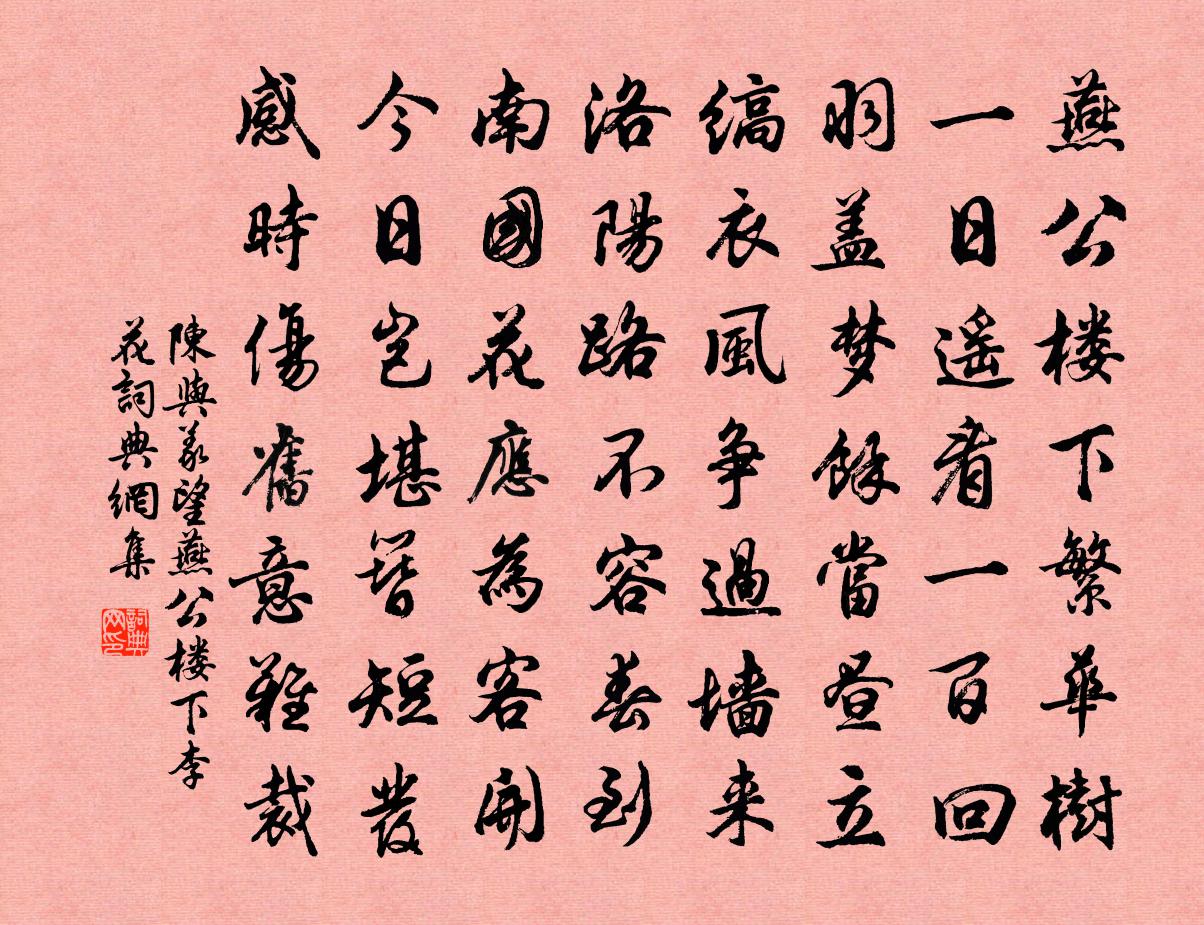 燕公楼下繁華樹
一日遥看一百回
羽盖梦餘當昼立
缟衣風争過墻来
洛陽路不容春到
南國花應為客開
今日岂堪簪短發
感時傷舊意難裁
陳與義望燕公楼下李
花詞典網集
詞典
网印